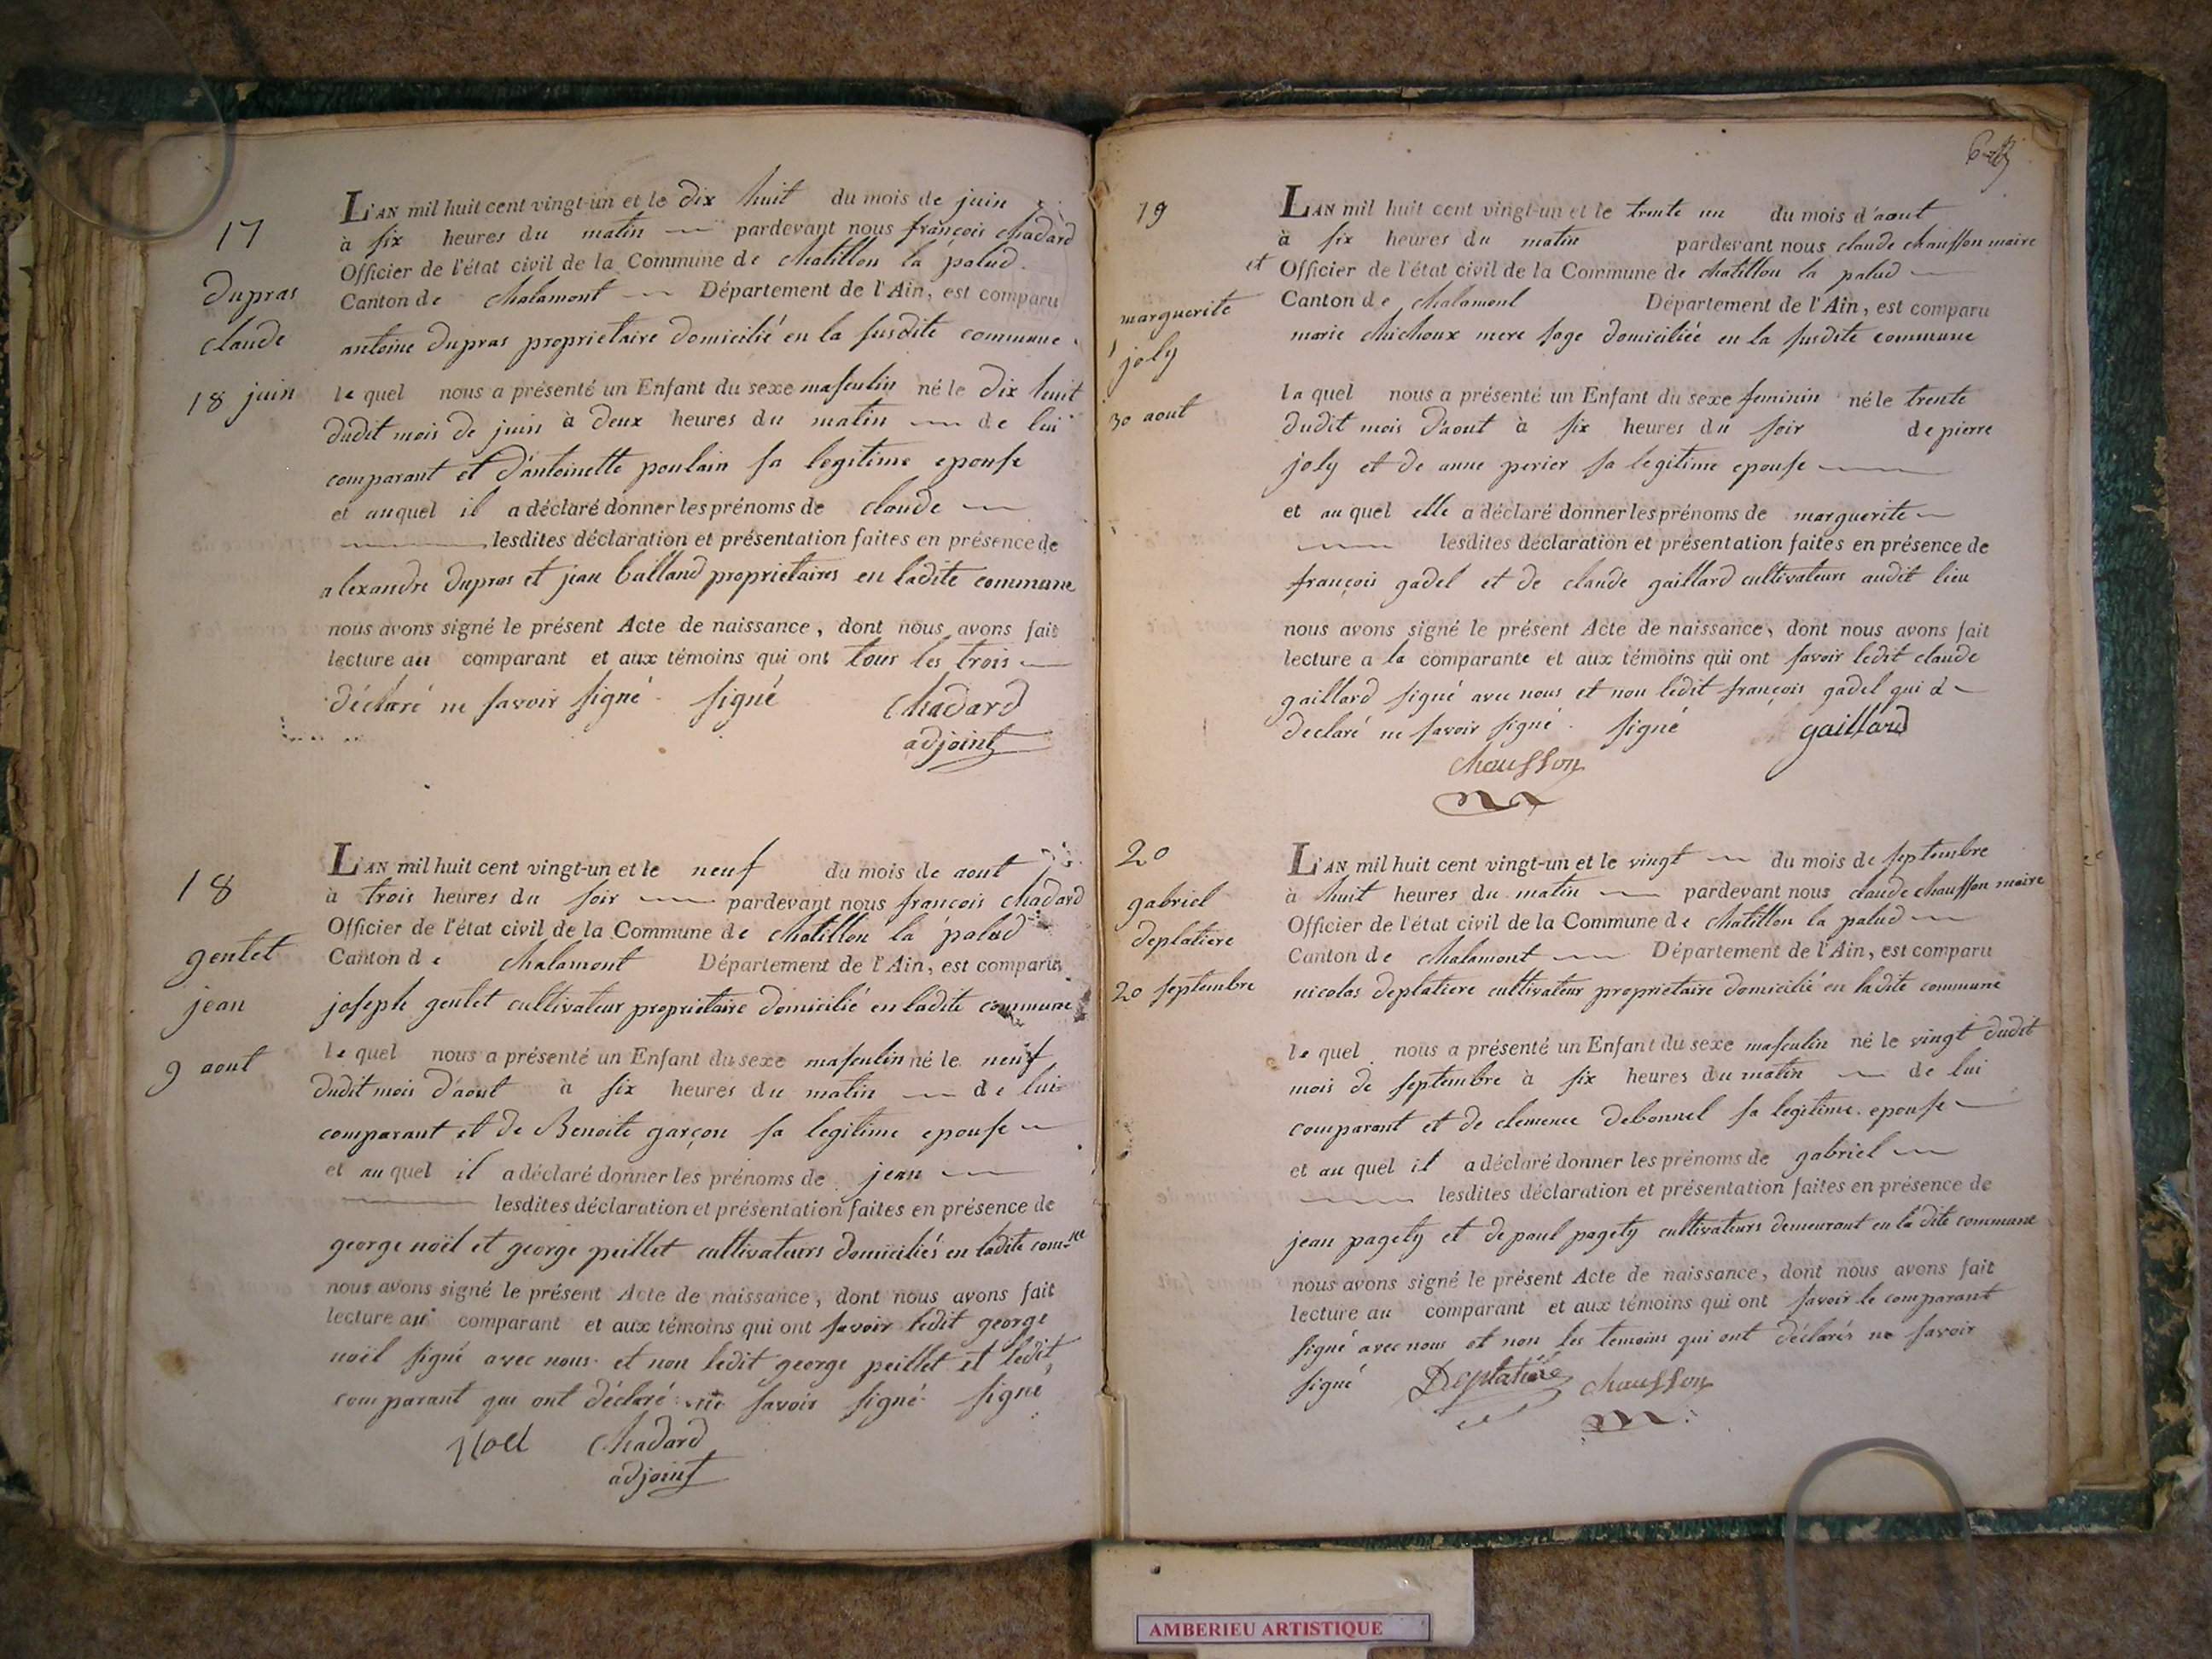 17
dupras
claude
18 juin
L'AN mil huit cent vingt-un et le dix huit du mois de juin
à six heures du matin pardevant nous françois chadard
Officier de l'état civil de la Commune de chatillon la palud
Canton de chalamont Département de l'Ain, est comparu
antoine dupras proprietaire domicilié en la susdite commune
le quel nous a présenté un Enfant du sexe masculin né le dix huit
dudit mois de juin à deux heures du matin de lui
comparant et d'antoinette poulain sa legitime epouse
et auquel il a déclaré donner les prénoms de claude
lesdites déclaration et présentation faites en présence de
alexandre dupras et jean balland proprietaires en ladite commune
nous avons signé le présent Acte de naissance, dont nous avons fait
lecture au comparant et aux témoins qui ont tous les trois
déclaré ne savoir signé. signé chadard
adjoint
18
gentet
jean
9 aout
L'AN mil huit cent vingt-un et le neuf du mois de aout
à trois heures du soir pardevant nous francois chadard
Officier de l'état civil de la Commune de chatillon la palud
Canton de chalamont Département de l'Ain, est comparu
joseph gentet cultivateur proprietaire domicilié en ladite commune
le quel nous a présenté un Enfant du sexe masculin né le neuf
dudit mois d'aout à six heures du matin de lui
comparant et de Benoite garçon sa legitime epouse
et au quel il a déclaré donner les prénoms de jean
lesdites déclaration et présentation faites en présence de
george noël et george peillet cultivateurs domiciliés en ladite com.ne
nous avons signé le présent Acte de naissance, dont nous avons fait
lecture au comparant et aux témoins qui ont savoir ledit george
noël signé avec nous et non ledit george peillet et ledit
comparant qui ont déclaré ne savoir signé. signé
Noel chadard
adjoint
19
marguerite
joly
30 aout
L'AN mil huit cent vingt-un et le trente un du mois d'aout
à six heures du matin pardevant nous claude chausson maire
et Officier de l'état civil de la Commune de chatillon la palud
Canton de chalamont Département de l'Ain, est comparu
marie chichoux mere sage domiciliée en la susdite commune
la quel nous a présenté un Enfant du sexe feminin né le trente
dudit mois d'aout à six heures du soir de pierre
joly et de anne perier sa legitime epouse
et au quel elle a déclaré donner les prénoms de marguerite
lesdites déclaration et présentation faites en présence de
françois gadel et de claude gaillard cultivateurs audit lieu
nous avons signé le présent Acte de naissance, dont nous avons fait
lecture a la comparante et aux témoins qui ont savoir ledit claude
gaillard signé avec nous et non ledit françois gadel qui a
declaré ne savoir signé. signé gaillard
chausson
20
gabriel
deplatiere
20 septembre
L'AN mil huit cent vingt-un et le vingt du mois de septembre
à huit heures du matin pardevant nous claude chausson maire
Officier de l'état civil de la Commune de chatillon la palud
Canton de chalamont Département de l'Ain, est comparu
nicolas deplatiere cultivateur proprietaire domicilié en ladite commune
le quel nous a présenté un Enfant du sexe masculin né le vingt dudit
mois de septembre à six heures du matin de lui
comparant et de clemence debonnel sa legitime epouse
et au quel il a déclaré donner les prénoms de gabriel
lesdites déclaration et présentation faites en présence de
jean pagety et de paul pagety cultivateurs demeurant en la dite commune
nous avons signé le présent Acte de naissance, dont nous avons fait
lecture au comparant et aux témoins qui ont savoir le comparant
signé avec nous et non les temoins qui ont déclarés ne savoir
signé Deplatière chausson
AMBERIEU ARTISTIQUE